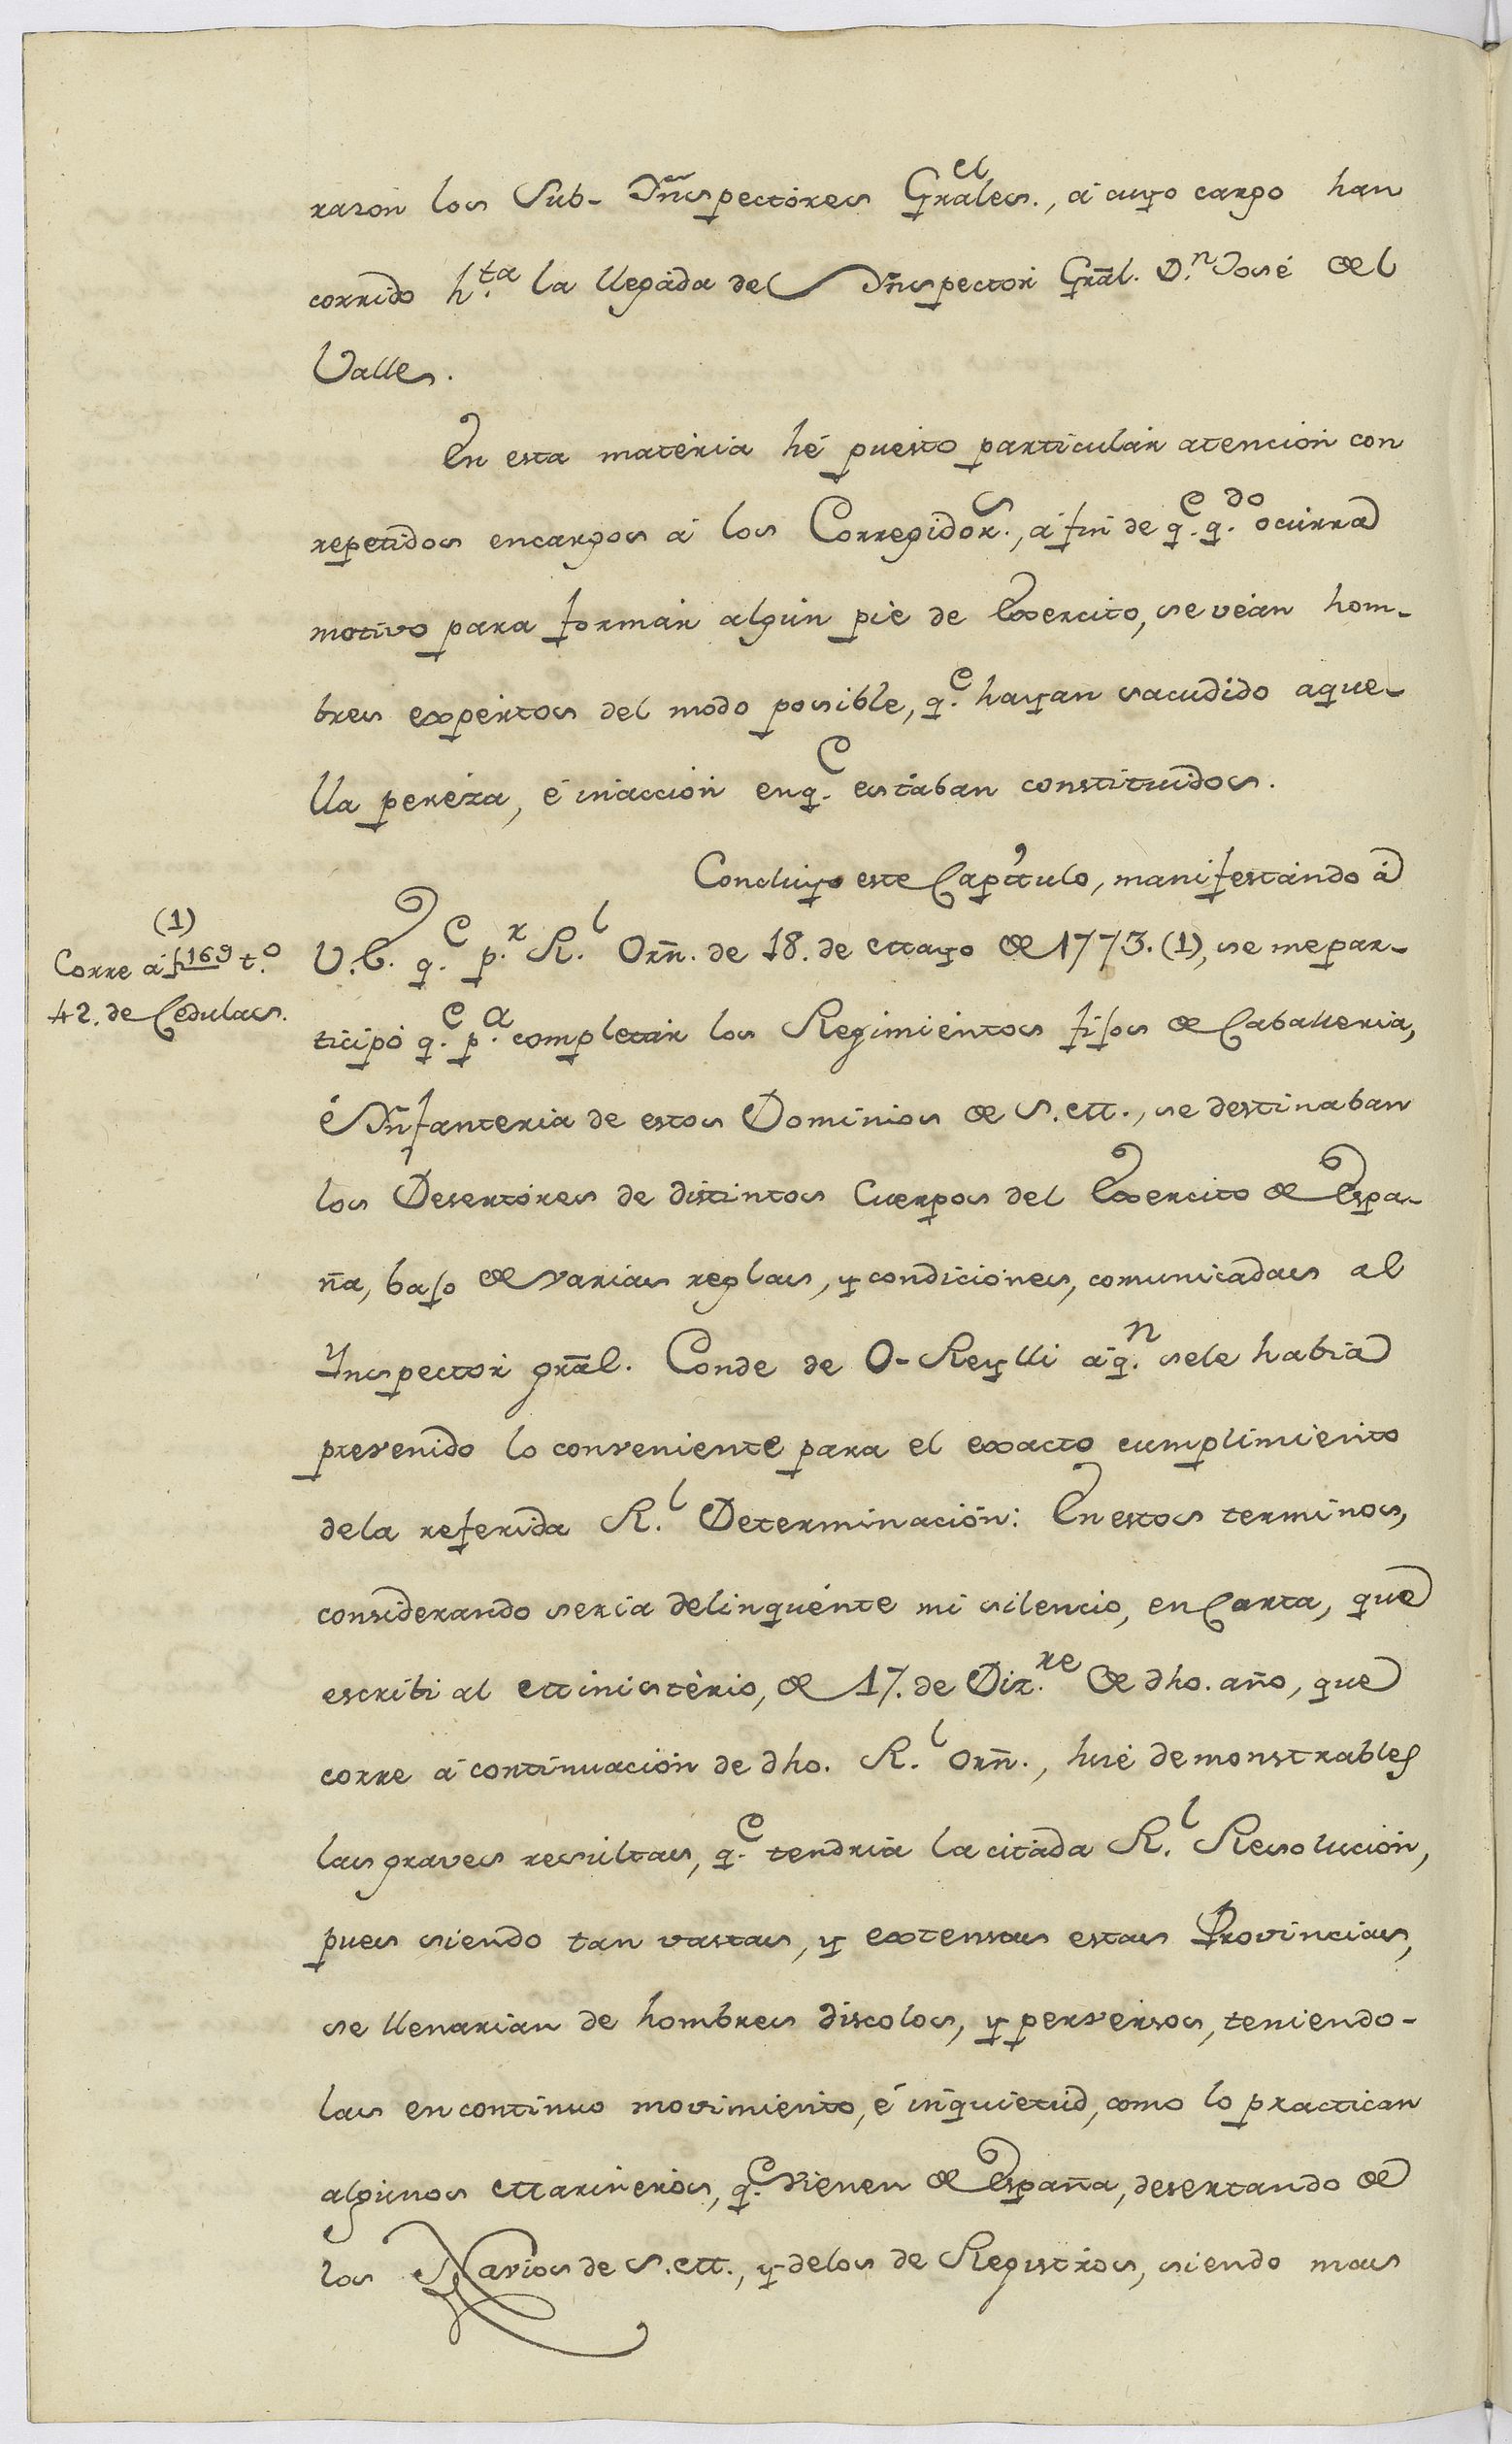 razon los Sub-Ynspectores Grales., á cuyo cargo han
corrido h.ta la llegada del Ynspector Grãl. D.n José del
Valle.
En esta materia hé puesto particular atencion con
repetidos encargos á los Corregidor.s, á fin de q.e q.do ocurra
motivo para formar algun pie de Exercito, se vean hom-
bres expertos del modo posible, q.e hayan sacudido aque-
lla pereza, é inaccion en q.e estaban constituidos.
Concluyo este Capitulo, manifestando á
(1)
Corre á f 169 t.o
42. de Cedulas.
V.E. q.e p.r R.l Orñ. de 18. de Mayo de 1773. (1), se me par-
ticipó q.e p.a completar los Regimientos fijos de Caballeria,
é Ynfanteria de estos Dominios de S.M., se destinaban
los Desertores de distintos Cuerpos del Exercito de Espa-
ña, bajo de varias reglas, y condiciones, comunicadas al
Ynspector grãl. Conde de O-Reylli á q.n se le habia
prevenido lo conveniente para el exacto cumplimiento
dela referida R.l Determinación: En estos terminos,
considerando seria delinquente mi silencio, en Carta, que
escribi al Ministerio, de 17. de Diz.re de dho. año, que
corre á continuacion de dho. R.l Orñ., hise demonstrables
las graves resultas, q.e tendria la citada R.l Resolucion,
pues siendo tan vastas, y extensas estas Provincias,
se llenarian de hombres discolos, y perversos, teniendo-
las en continuo movimiento, é inquietud, como lo practican
algunos Marineros, q.e vienen de España, desertando de
los Navios de S.M., y delos de Registros, siendo mas